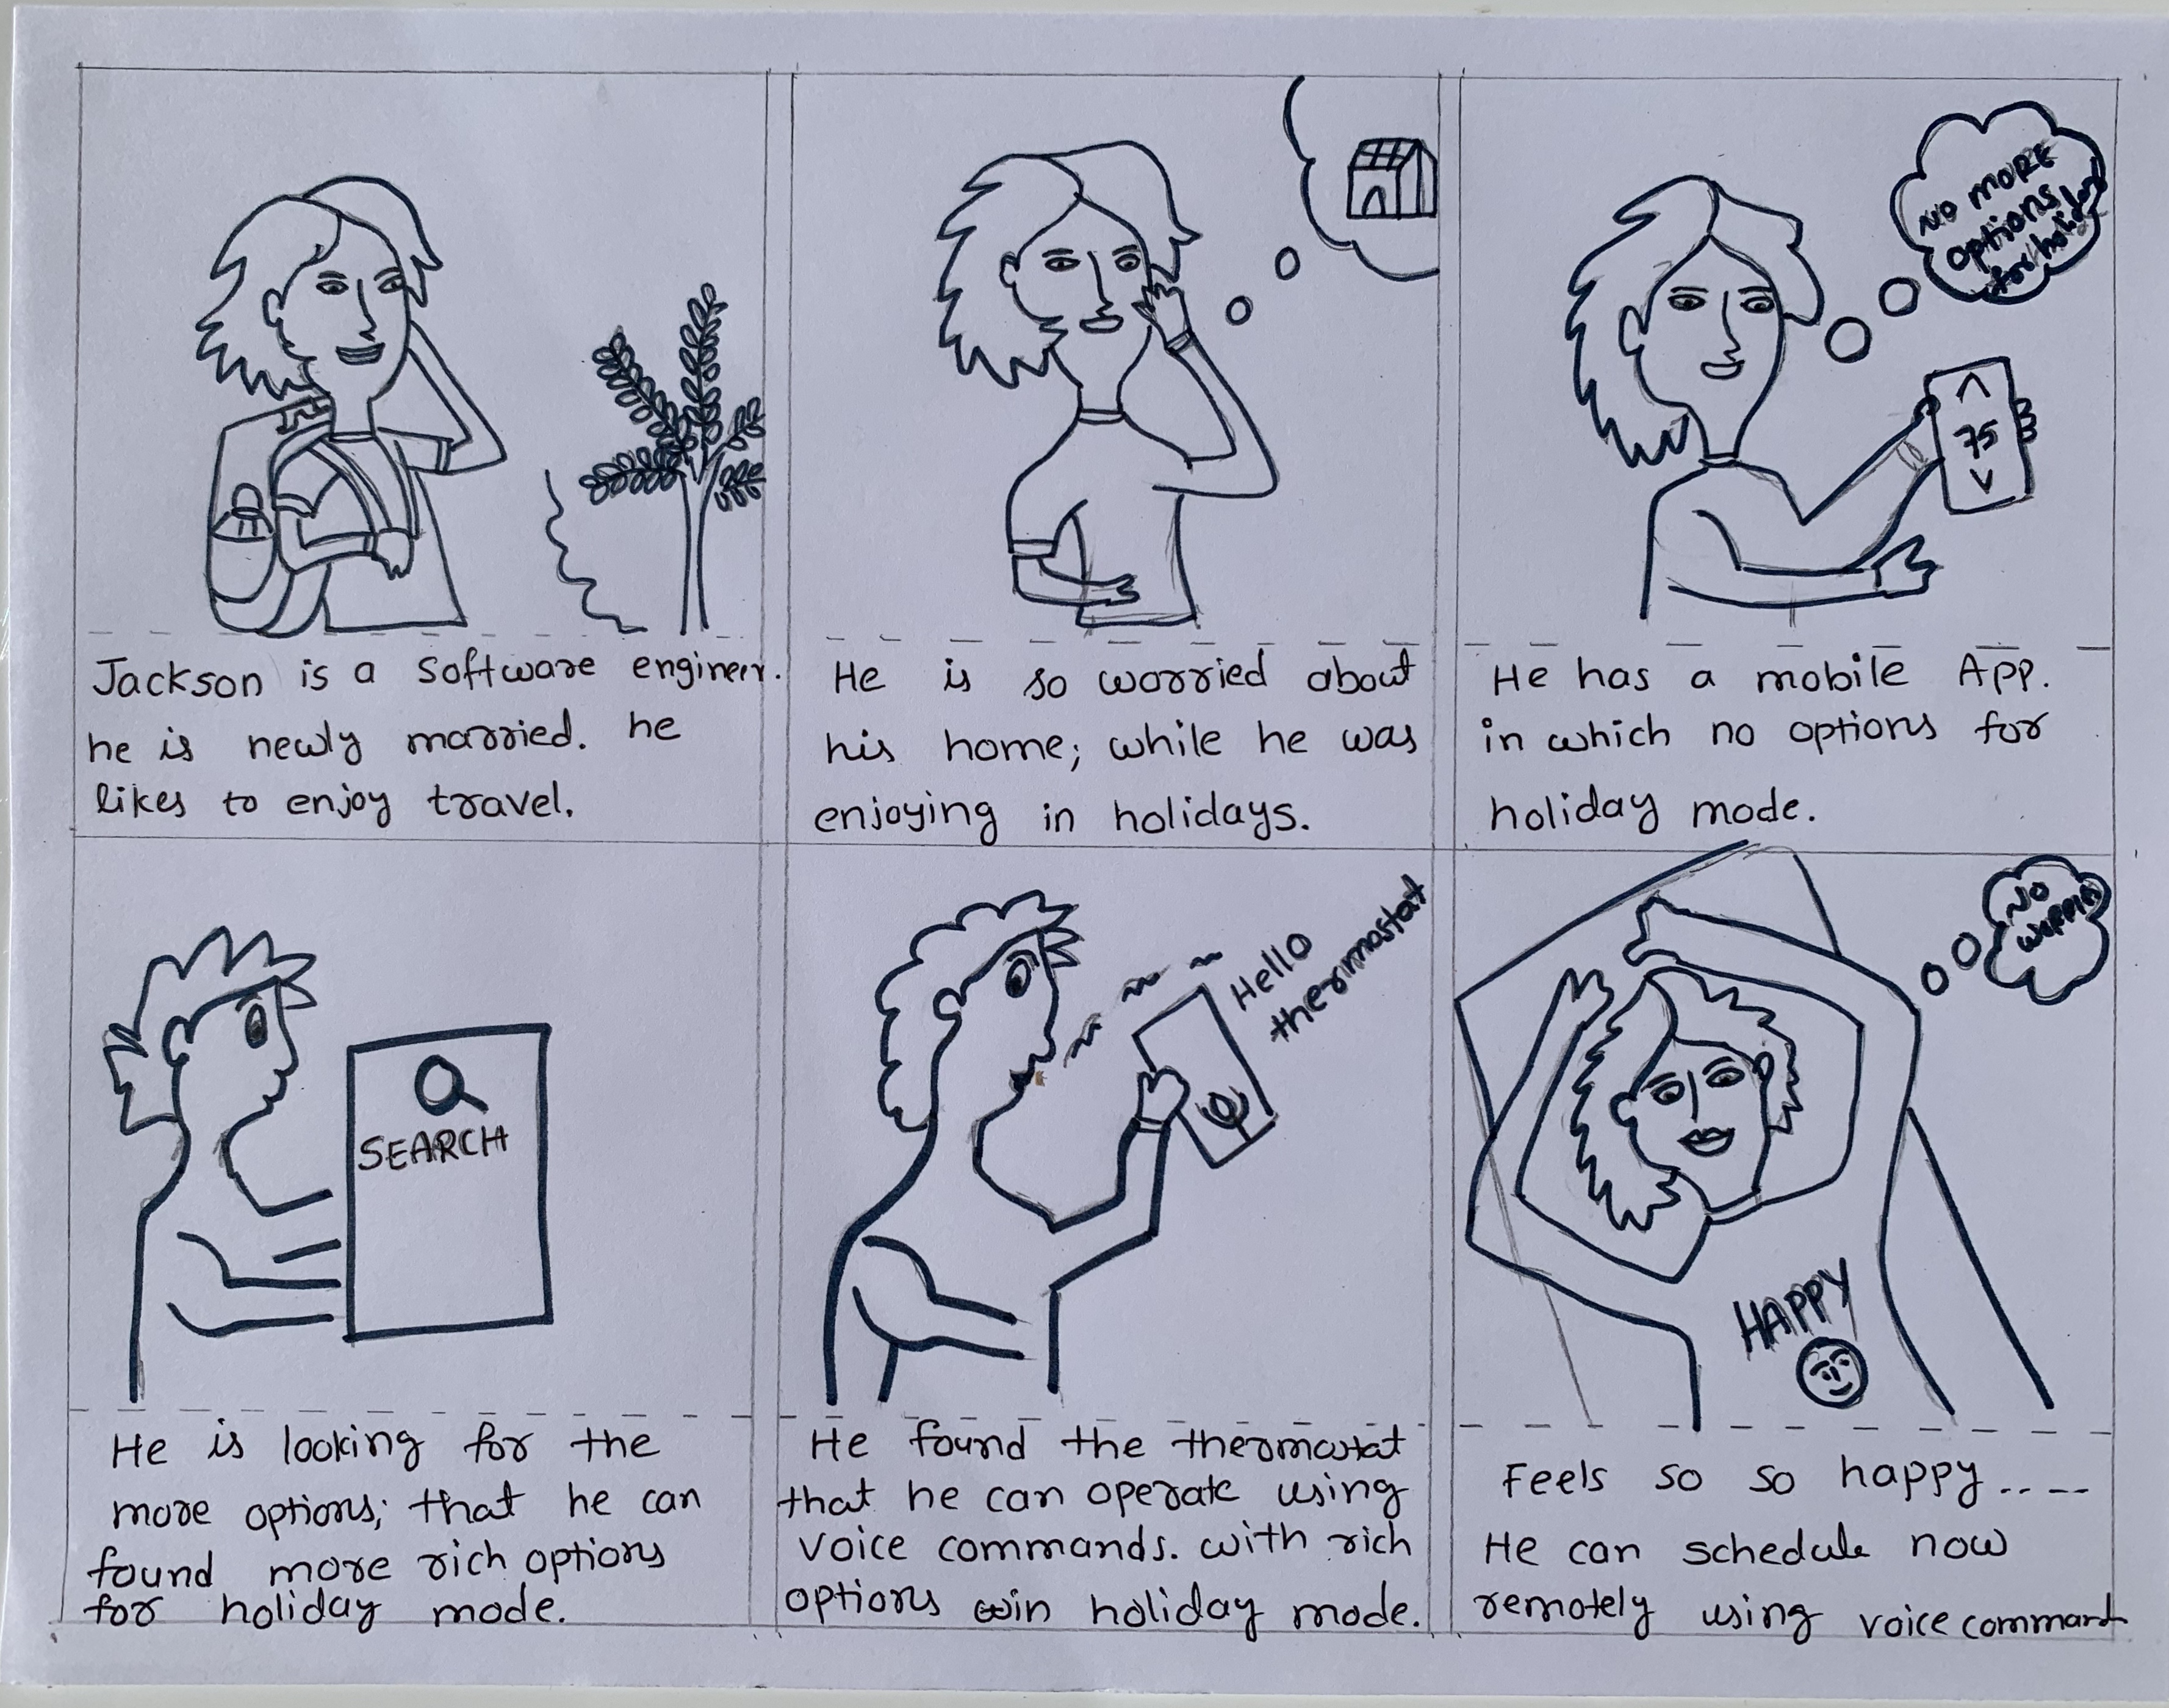 Jackson is a software engineer.
he is newly married. he
likes to enjoy travel.
He is so worried about
his home; while he was
enjoying in holidays.
NO MORE
options
for holiday
^
75
v
He has a mobile App.
in which no options for
holiday mode.
SEARCH
He is looking for the
more options; that he can
found more rich options
for holiday mode.
Hello
thermostat
He found the thermostat
that he can operate using
voice commands. with rich
options win holiday mode.
NO
HAPPY
Feels so so happy....--
He can schedule now
remotely using voice command